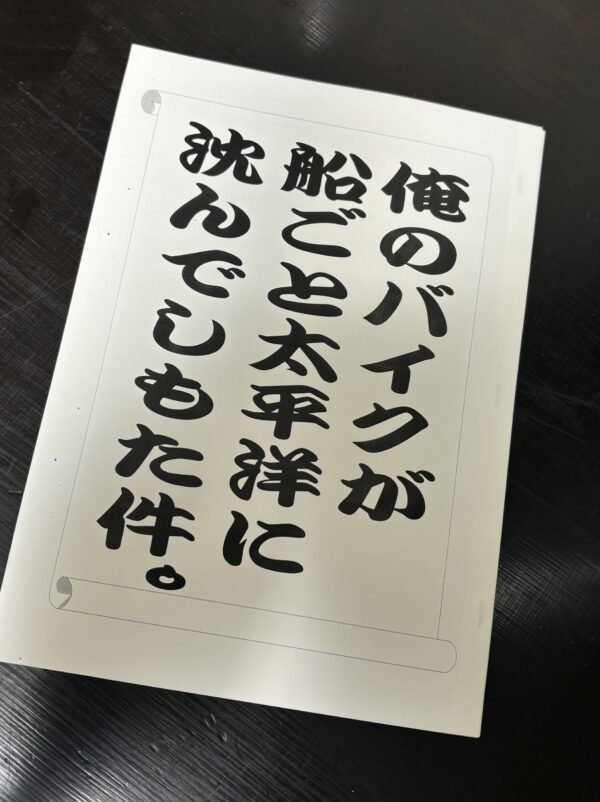 俺のバイクが
船ごと太平洋に
沈んでしもた件。